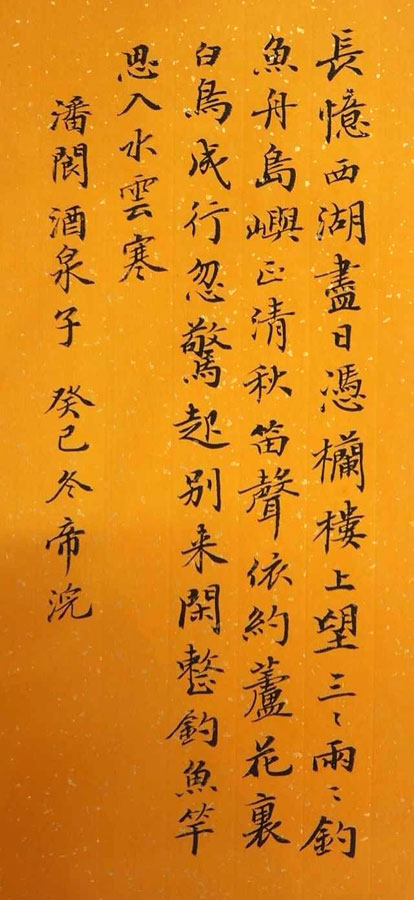 長憶西湖盡日憑欄樓上望三〻兩〻釣
魚舟島嶼正清秋笛聲依約蘆花裏
白鳥成行忽驚起別来閑整釣魚竿
思入水雲寒
潘閬酒泉子 癸巳冬帝浣